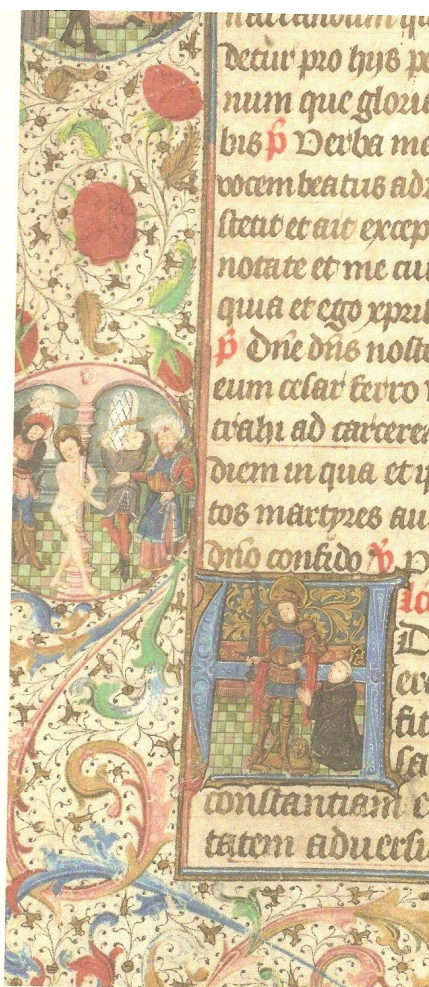 detur pro hijs pe
num que glorie
bis p̄ Verba me
vocem beatus adr
stetit et ait excep
notate et me au
quia et ego xp̄ri
p̄ Dn̄e dn̄s noste
eum cesar ferro v
trahi ad carcere
diem in qua et ip
tos martyres au
dn̄o confido v̄ P
A
D
constantiam e
tatem adversi